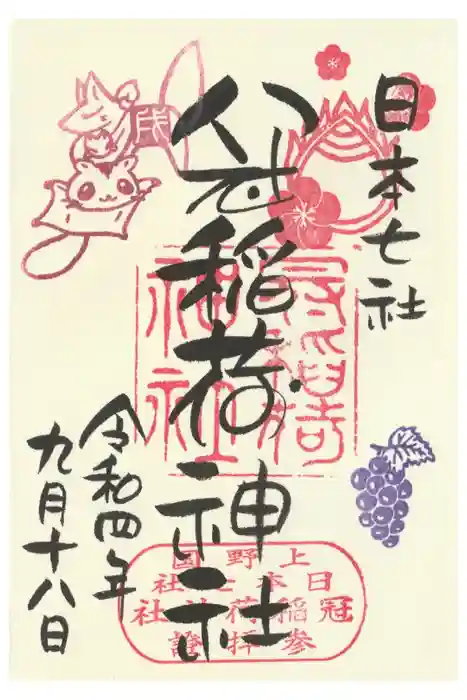 日本七社
八社稲荷神社
令和四年
九月十八日
冠稲荷
神社
上野国
日本七社
冠稲荷神社
参拝證